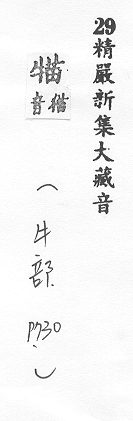 29精嚴新集大藏音
音
（牛部 P730）